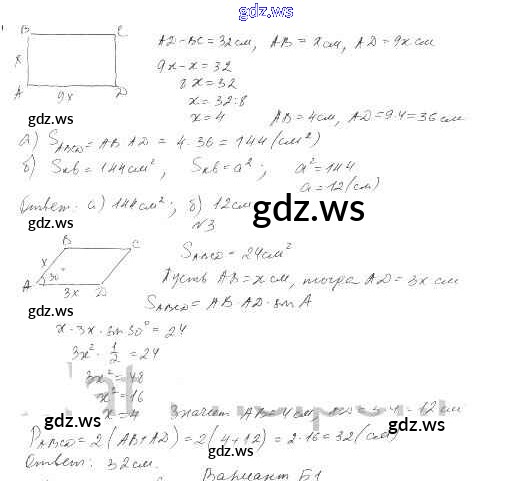 gdz.ws
B C
x
A 9x D
AD-BC=32см, AB=xсм, AD=9x см
9x-x=32
8x=32
x=32:8
x=4 AB=4см, AD=9·4=36см
gdz.ws
а) S_ABCD=AB AD=4·36=144(см²)
б) Sкв=144см², Sкв=a²; a²=144
a=12(см)
Ответ: а) 144см²; б) 12см
gdz.ws
gdz.ws
N3
B C
x
A 30° D
3x
S_ABCD=24см²
Пусть AB=xсм, тогда AD=3x см
S_ABCD=AB AD·sin A
gdz.ws
x·3x·sin30°=24
3x²·1/2=24
3x²=48
x²=16
x=4 Значит AB=4см, =12см
gdz.ws
gdz.ws
P_ABCD=2(AB+AD)=2(4+12)=2·16=32(см)
Ответ: 32см.
Вариант Б1
gdz.ws